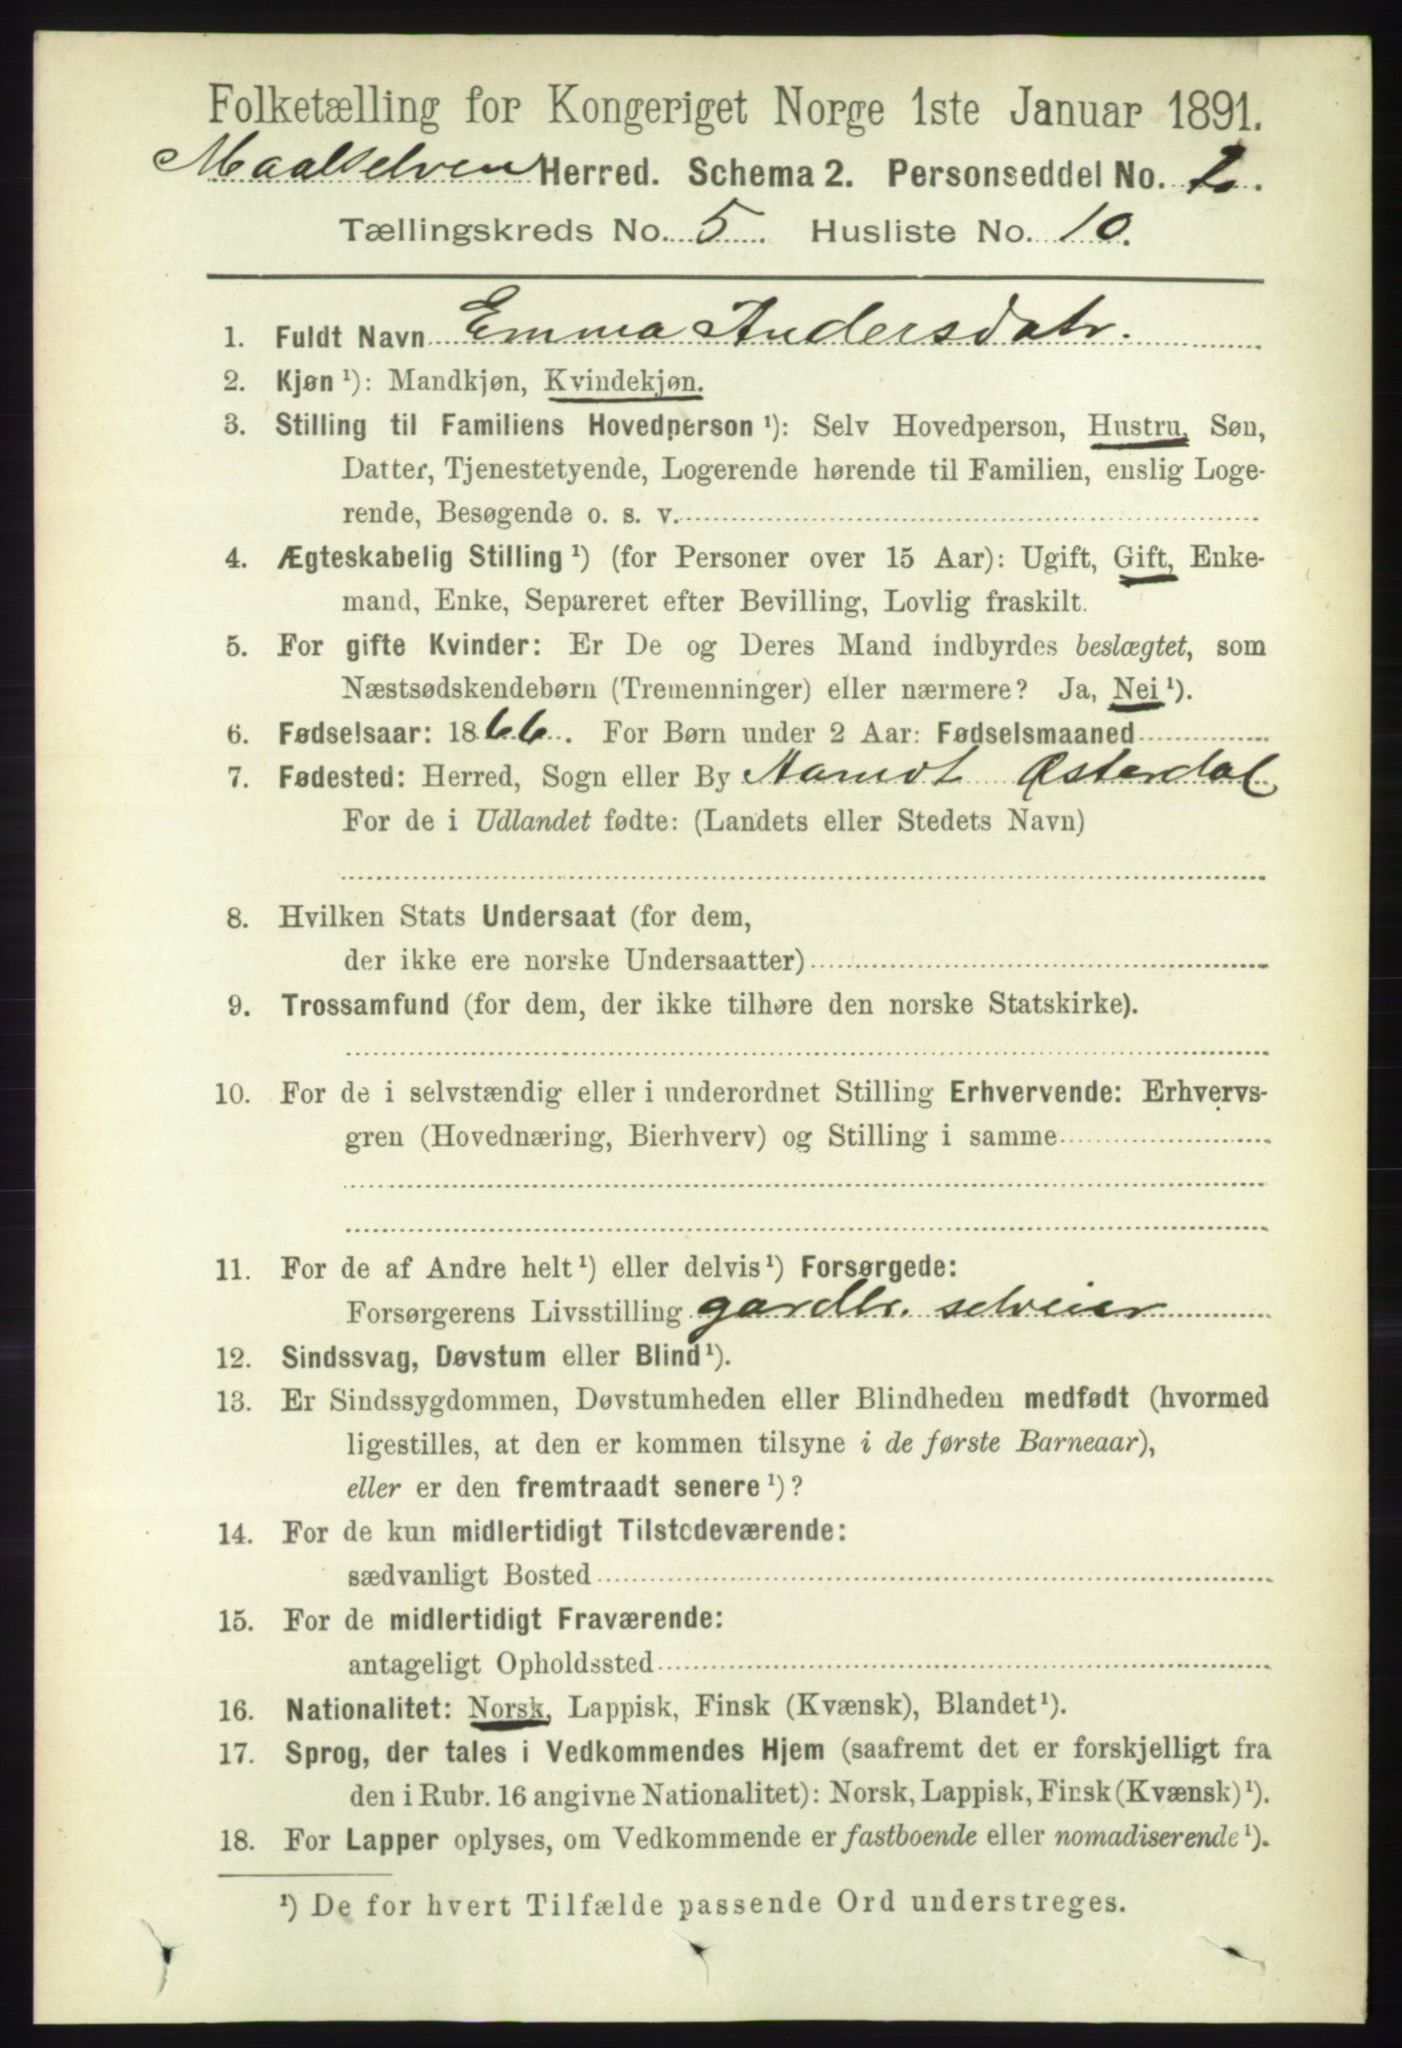 Folketælling for Kongeriget Norge 1ste Januar 1891.
Maalselven Herred. Schema 2. Personseddel No. 2.
Tællingskreds No. 5. Husliste No. 10.
1. Fuldt Navn Emma Andersdatr.
2. Kjøn ¹): Mandkjøn, Kvindekjøn.
3. Stilling til Familiens Hovedperson ¹): Selv Hovedperson, Hustru, Søn,
Datter, Tjenestetyende, Logerende hørende til Familien, enslig Loge-
rende, Besøgende o. s. v.
4. Ægteskabelig Stilling ¹) (for Personer over 15 Aar): Ugift, Gift, Enke-
mand, Enke, Separeret efter Bevilling, Lovlig fraskilt.
5. For gifte Kvinder: Er De og Deres Mand indbyrdes beslægtet, som
Næstsødskendebørn (Tremenninger) eller nærmere? Ja, Nei ¹).
6. Fødselsaar: 1866. For Børn under 2 Aar: Fødselsmaaned
7. Fødested: Herred, Sogn eller By Aamot Østerdal
For de i Udlandet fødte: (Landets eller Stedets Navn)
8. Hvilken Stats Undersaat (for dem,
der ikke ere norske Undersaatter)
9. Trossamfund (for dem, der ikke tilhøre den norske Statskirke).
10. For de i selvstændig eller i underordnet Stilling Erhvervende: Erhvervs-
gren (Hovednæring, Bierhverv) og Stilling i samme
11. For de af Andre helt ¹) eller delvis ¹) Forsørgede:
Forsørgerens Livsstilling gardbr. selveier
12. Sindssvag, Døvstum eller Blind ¹).
13. Er Sindssygdommen, Døvstumheden eller Blindheden medfødt (hvormed
ligestilles, at den er kommen tilsyne i de første Barneaar),
eller er den fremtraadt senere ¹)?
14. For de kun midlertidigt Tilstedeværende:
sædvanligt Bosted
15. For de midlertidigt Fraværende:
antageligt Opholdssted
16. Nationalitet: Norsk, Lappisk, Finsk (Kvænsk), Blandet ¹).
17. Sprog, der tales i Vedkommendes Hjem (saafremt det er forskjelligt fra
den i Rubr. 16 angivne Nationalitet): Norsk, Lappisk, Finsk (Kvænsk) ¹).
18. For Lapper oplyses, om Vedkommende er fastboende eller nomadiserende ¹).
¹) De for hvert Tilfælde passende Ord understreges.